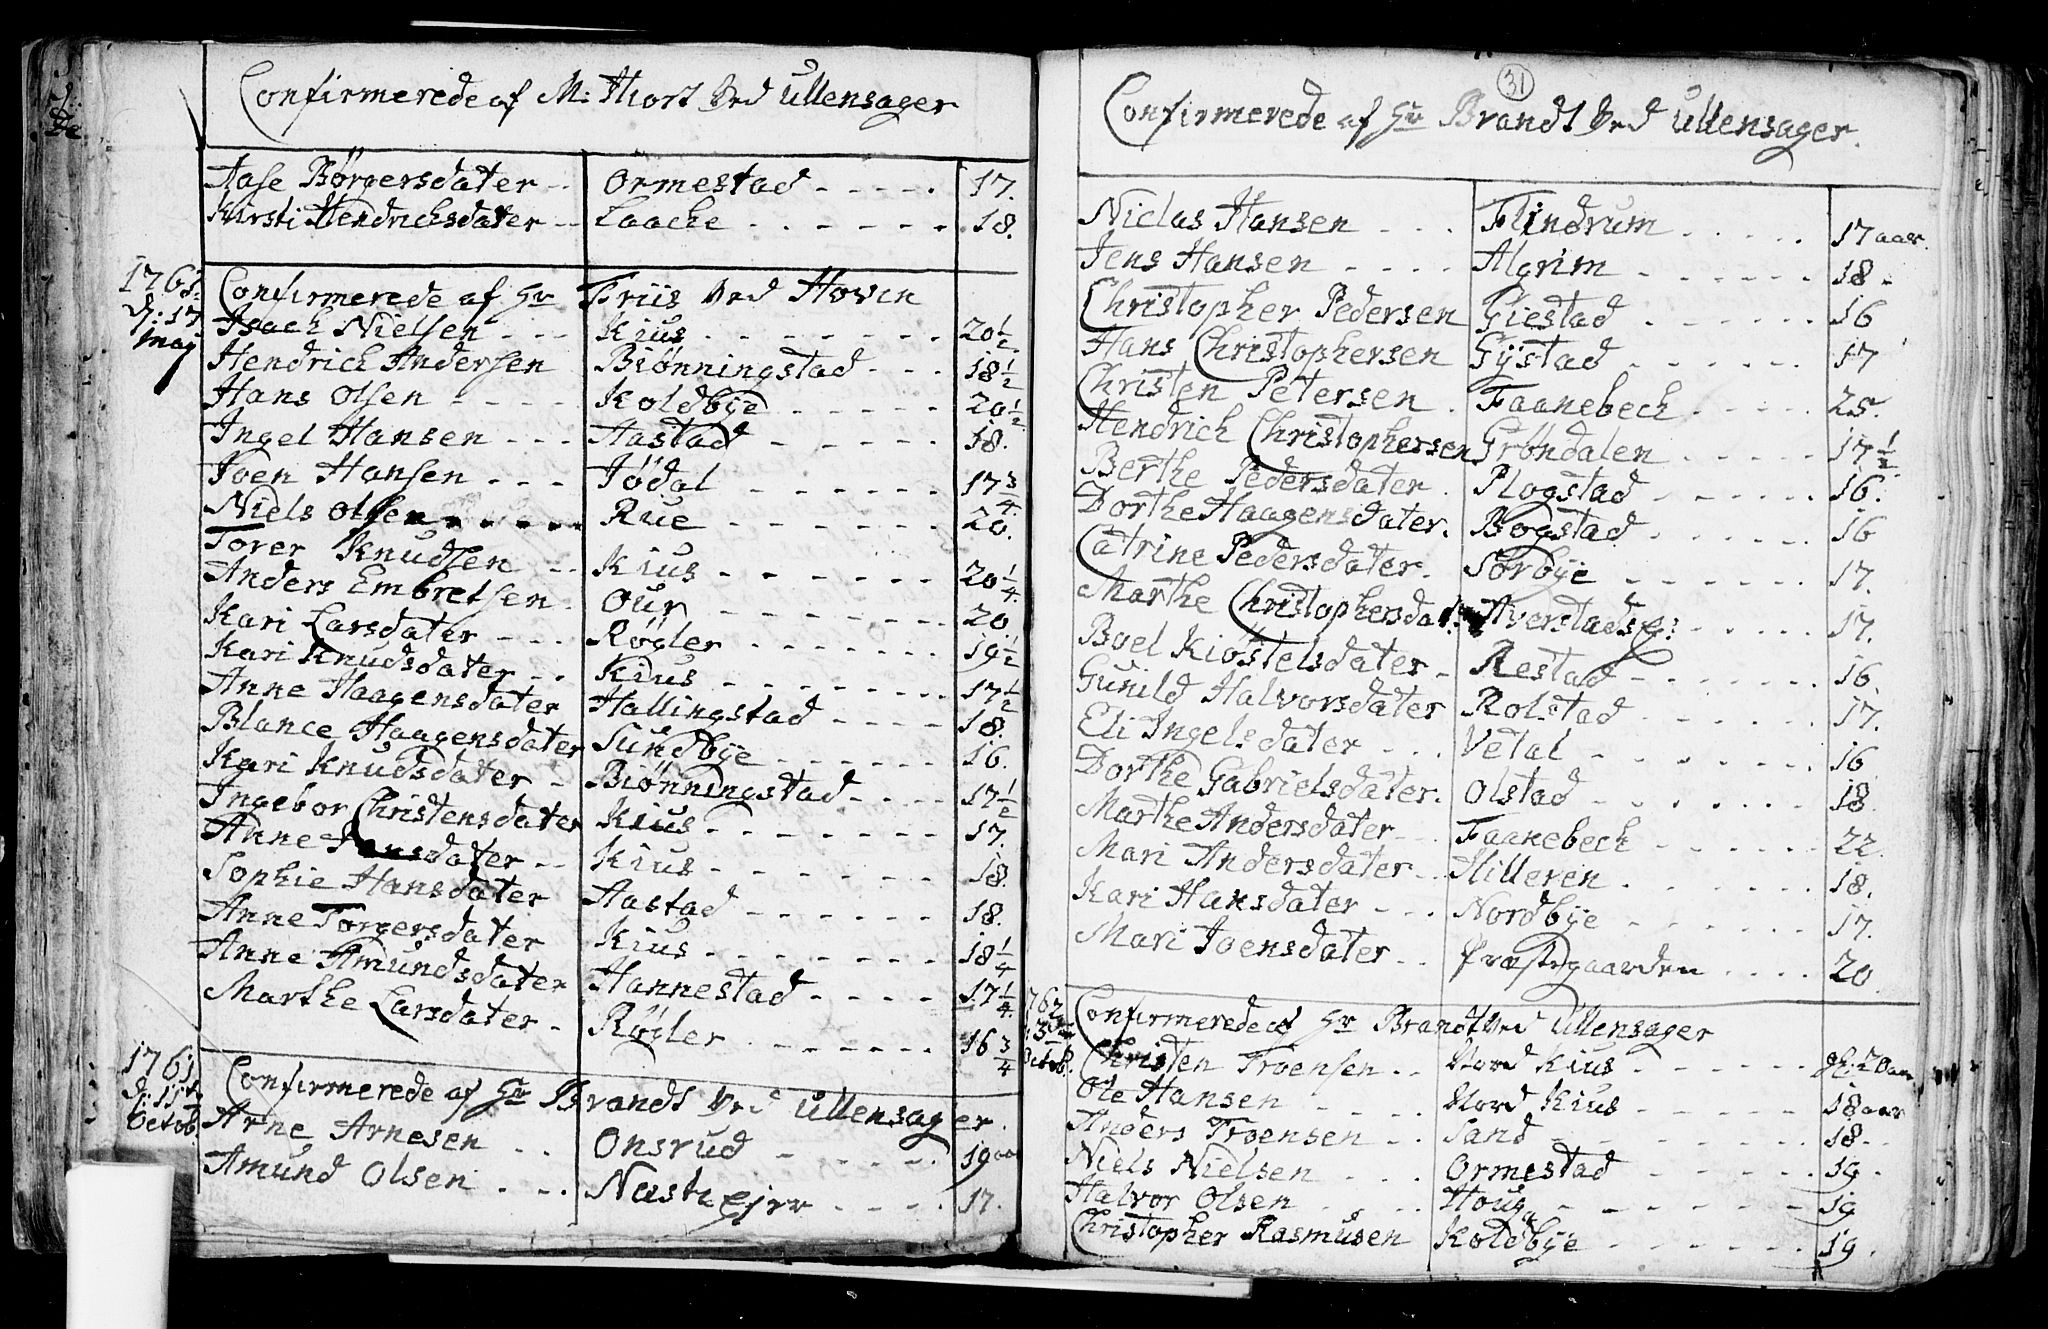 Confirmerede af M: Hiort Ved Ullensager
Aase Børgersdater -- Ormestad - - - - . 17.
Kirsti Hendrichsdater -- Laache . - - - - - 18.
1761. Confirmerede af Hr Friis Ved Hovin
d: 17 Isach Nielsen - - - Kius - - - - - - - 20 1/2.
maj Hendrich Andersen Biønningstad - - - 18 1/2
Hans Olsen - - - - Koldbye - - - - - 20 1/2.
Ingel Hansen - - - Aastad - - - - - 18.
Joen Hansen - - - Jødal - - - - - - 17 3/4.
Niels Olsen - - - - - Rue - - - - - - 20.
Torer Knudsen - - Kius - - - - - - 20 1/4.
Anders Embretsen - Our - - - - - - 20.
Kari Larsdater - - - Røgler - - - - - - 19 1/2
Kari Knudsdater - - Kius - - - - - - - 17 1/2
Anne Haagensdater Hallingstad - - - - 18.
Blance Haagensdater Sundbye - - - - - 16.
Kari Knudsdater - Biønningstad - - - - 17 1/2
Ingebor Christensdater Kius - - - - - - - 17.
Anne Hansdater - - Kius - - - - - - - 18.
Sophie Hansdater Aastad - - - - - - 18.
Anne Torgersdater Kius - - - - - - - 18 1/4
Anne Amundsdater Hannestad - - - - 17 1/4.
Marthe Larsdater - Røgler - - - - - - 16 3/4
1761. Confirmerede af Hr Brandt Ved Ullensager.
d: 11te Arne Arnesen - - Onsrud - - - - - 19 aar
Octob. Amund Olsen - - - Nastnejer - - - - 17.
31
Confirmerede af Hr Brandt Ved Ullensager.
Niclas Hansen - - - Flindrum - - - - - 17 aar.
Jens Hansen - - - - Algrim - - - - - - 18 -
Christopher Pedersen Giestad - - - - - - 16
Hans Christophersen Gystad - - - - - - 17
Christen Petersen . Faanebech - - - - - 25.
Hendrich Christophersen Grøndalen - - - - - 17 1/2
Berthe Pedersdater . Plogstad - - - - - - 16.
Dorthe Haagensdater. Bogstad - - - - - - 16
Catrine Pedersdater. Sørbye - - - - - - - 17.
Marthe Christophersdat: Averstadse: - - - - - 17.
Boel Kiøstelsdater - Restad - - - - - - 16
Gunild Halvorsdater Rolstad - - - - - - 17.
Eli Ingelsdater - - - Vetal - - - - - - - 16
Dorthe Gabrielsdater. Olstad - - - - - - - 18
Marthe Andersdater - Faanebech - - - - - - 22.
Mari Andersdater - - Hilleren - - - - - - 18.
Kari Hansdater - - - Nordbye - - - - - - 17.
Mari Joensdater - - Præstegaarden - - - - 20
1762 Confirmerede af Hr Brandt Ved Ullensager
d: 3die Christen Troensen - - Nord Kius - - - - - - 20 aar
Octob. Ole Hansen - - - - Nord Kius - - - - - 18 aar
Anders Troensen - - Sand - - - - - - - 18 - -
Niels Nielsen - - - Ormestad - - - - - - 19 -
Halvor Olsen - - - - Houg - - - - - - - 19
Christopher Rasmusen Koldbye - - - - - - 19.